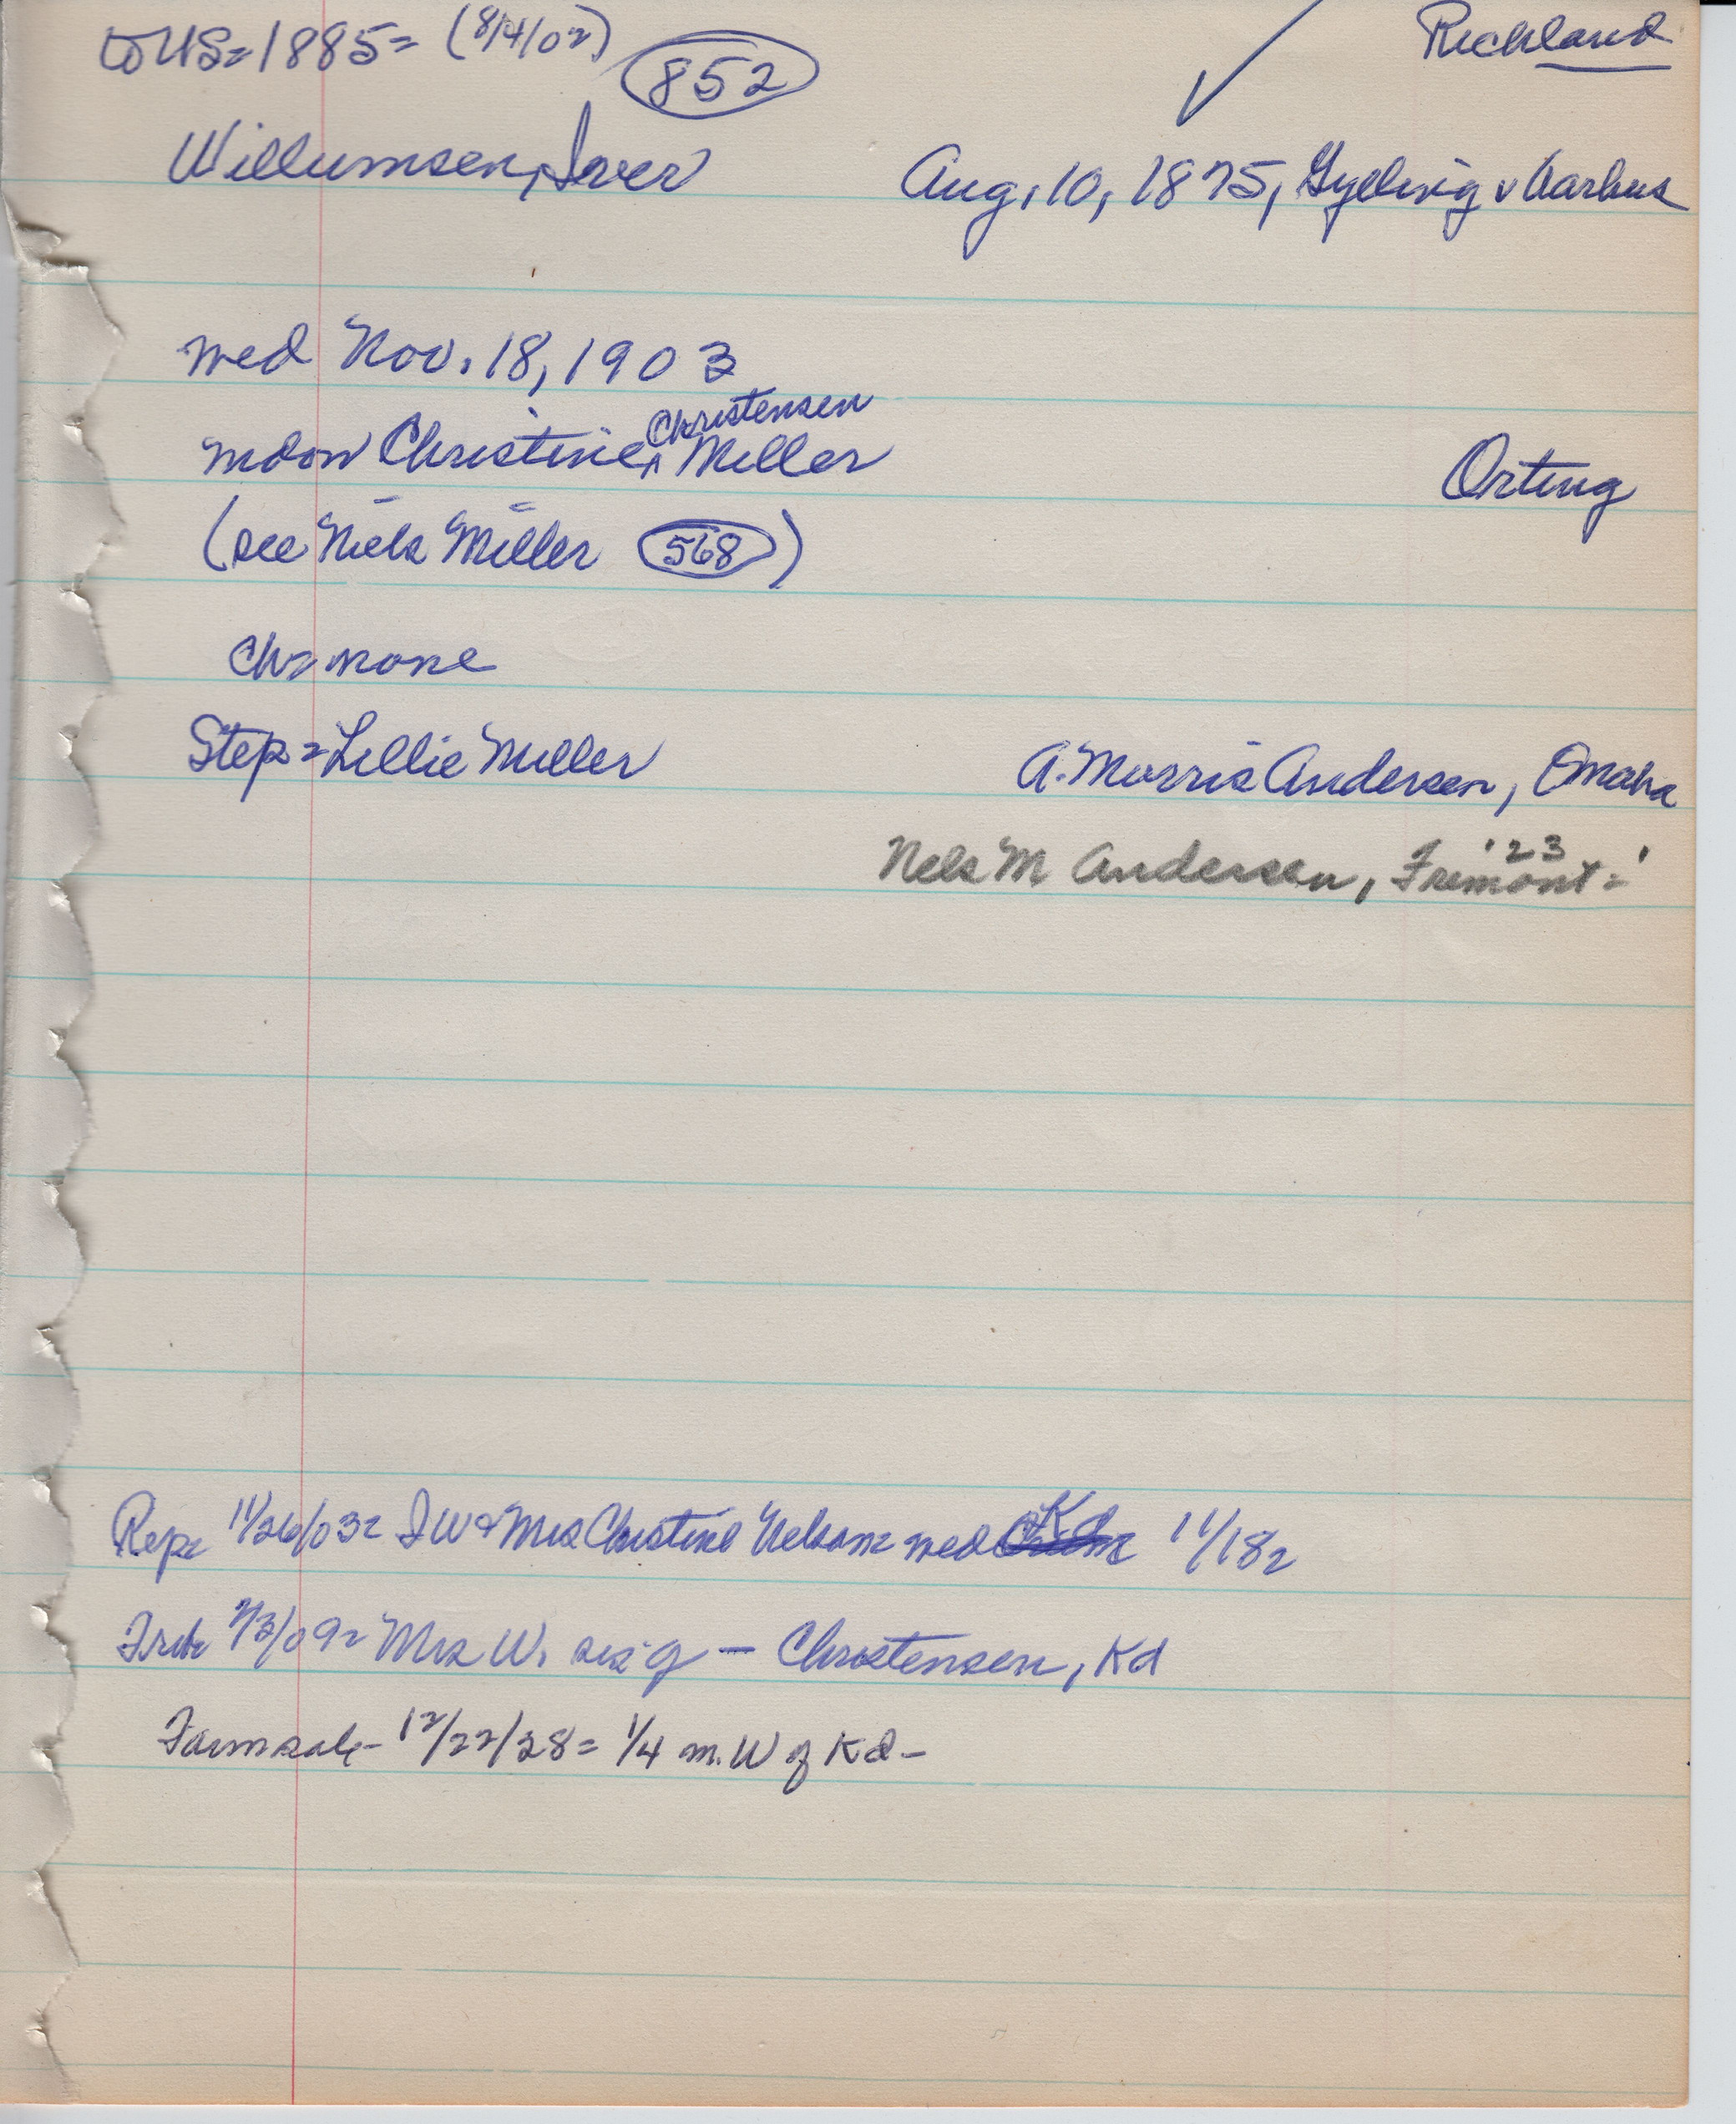 to US= 1885= (8/4/02) 852 Richland
Willumsen, Iver Aug. 10, 1875, Gyelvig v Aarhus
wed Nov. 18, 1903
Christensen
Christine ^ Miller Orting
(see Niels Miller 568)
Ch= none
Step= Lillie Miller A. Morris Andersen, Omaha
'23
Nels M Andersen, Fremont='
Rep= 11/26/03= IW & Mrs Christine Nelson= wed Kd 11/18=
Trib= 7/3/09= Mrs W. sis of — Christensen, Kd
Farm sale- 12/22/28= 1/4 m. W of Kd-